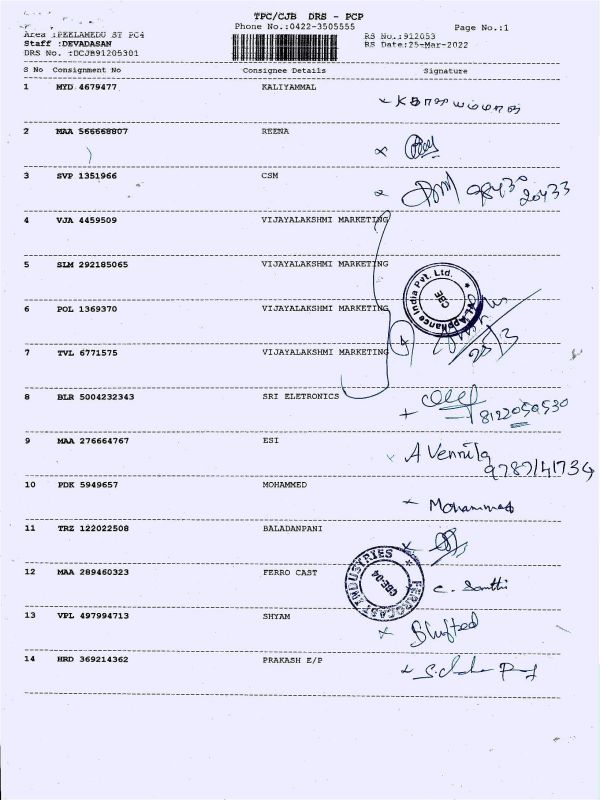 TPC/CJB DRS - PCP
Phone No.:0422-3505555
Page No.:1
Area :PEELAMEDU ST PC4
Staff :DEVADASAN
DRS No. :DCJB91205301
RS No.:912053
RS Date:25-Mar-2022
S No Consignment No Consignee Details Signature
1 MYD 4679477 KALIYAMMAL
2 MAA 566668807 REENA
3 SVP 1351966 CSM
98430 20433
4 VJA 4459509 VIJAYALAKSHMI MARKETING
5 SLM 292185065 VIJAYALAKSHMI MARKETING
Appliance India Pvt. Ltd.
CBE
6 POL 1369370 VIJAYALAKSHMI MARKETING
4
25/3
7 TVL 6771575 VIJAYALAKSHMI MARKETING
8 BLR 5004232343 SRI ELETRONICS
8122050530
9 MAA 276664767 ESI
A Vennila
9787141734
10 PDK 5949657 MOHAMMED
Mohammed
11 TRZ 122022508 BALADANPANI
12 MAA 289460323 FERRO CAST
FERROCAST INDUSTRIES
CBE-04
C. Santhi
13 VPL 497994713 SHYAM
Shifted
14 HRD 369214362 PRAKASH E/P